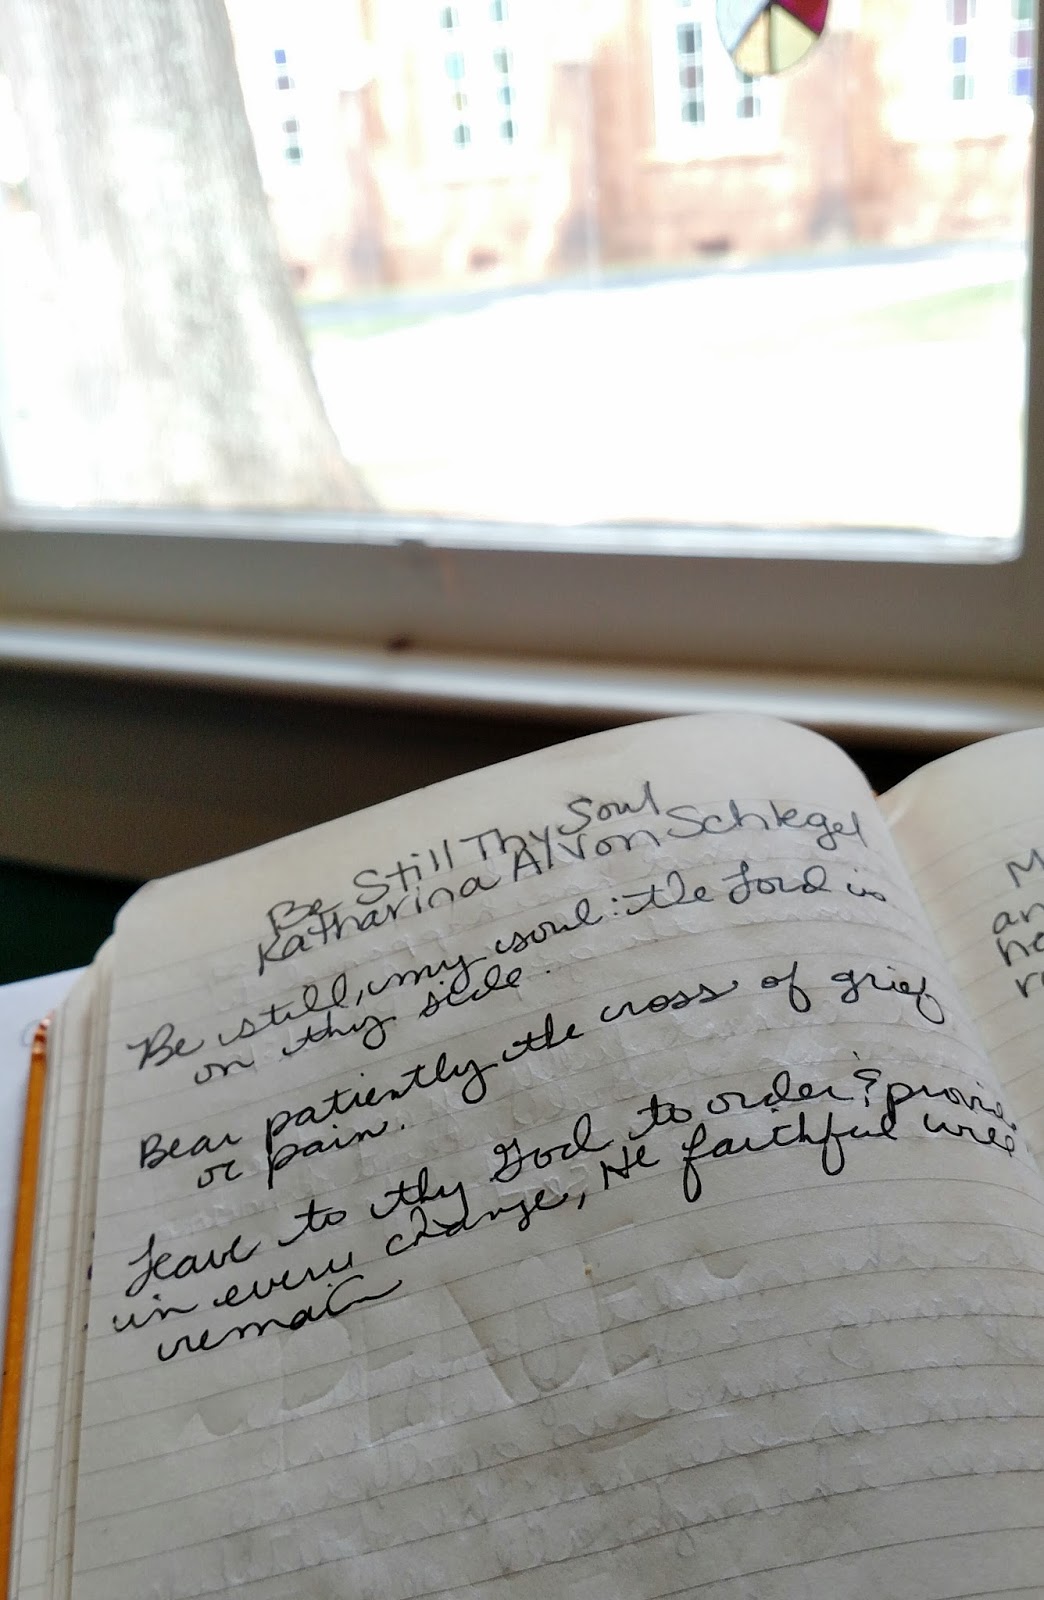 Be Still Thy Soul
Katharina A. von Schlegel
Be still, my soul: the Lord is
on thy side.
Bear patiently the cross of grief
or pain.
Leave to thy God to order & provi
in every change, He faithful will
remain
M
an
he
r